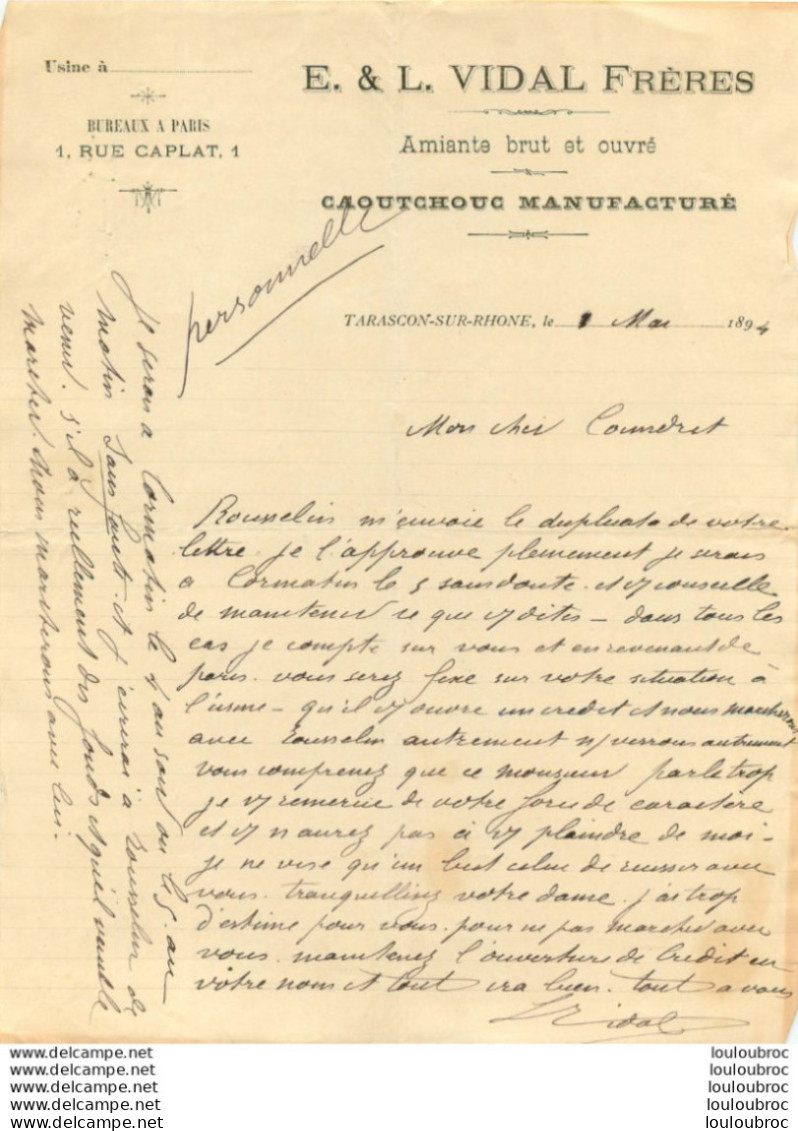 Usine à
BUREAUX A PARIS
1, RUE CAPLAT, 1
E. & L. VIDAL FRÈRES
Amiante brut et ouvré
CAOUTCHOUC MANUFACTURÉ
personnelle
TARASCON-SUR-RHONE, le 1 Mai 1894
Mon cher
Rousselin m'envoie le duplicata de votre
lettre. je l'approuve pleinement je serais
a Cormatin le 5 sans doute et vs conseille
de maintenir ce que vs dites – dans tous les
cas je compte sur vous et en revenant de
paris. vous serez fixé sur votre situation à
l'usine – qu'il vs ouvre un credit et nous marcherons
avec Rousselin autrement ns verrons autrement
vous comprenez que ce monsieur parle trop
je vs remercie de votre force de caractère
et vs n'aurez pas à vs plaindre de moi –
je ne vise qu'un but celui de reussir avec
vous. tranquillisez votre dame. j'ai trop
d'estime pour vous. pour ne pas marcher avec
vous. maintenez l'ouverture de crédit en
votre nom et tout ira bien. tout a vous
L Vidal
Je serais a Cormatin le 4 au soir ou le 5. au
matin sans faute et j'écrirai à Rousselin de
venir. s'il a réellement des fonds et qu'il veuille
marcher. Nous marcherons avec lui.
www.delcampe.net
www.delcampe.net
www.delcampe.net
www.delcampe.net
www.delcampe.net
louloubroc
louloubroc
louloubroc
louloubroc
louloubroc